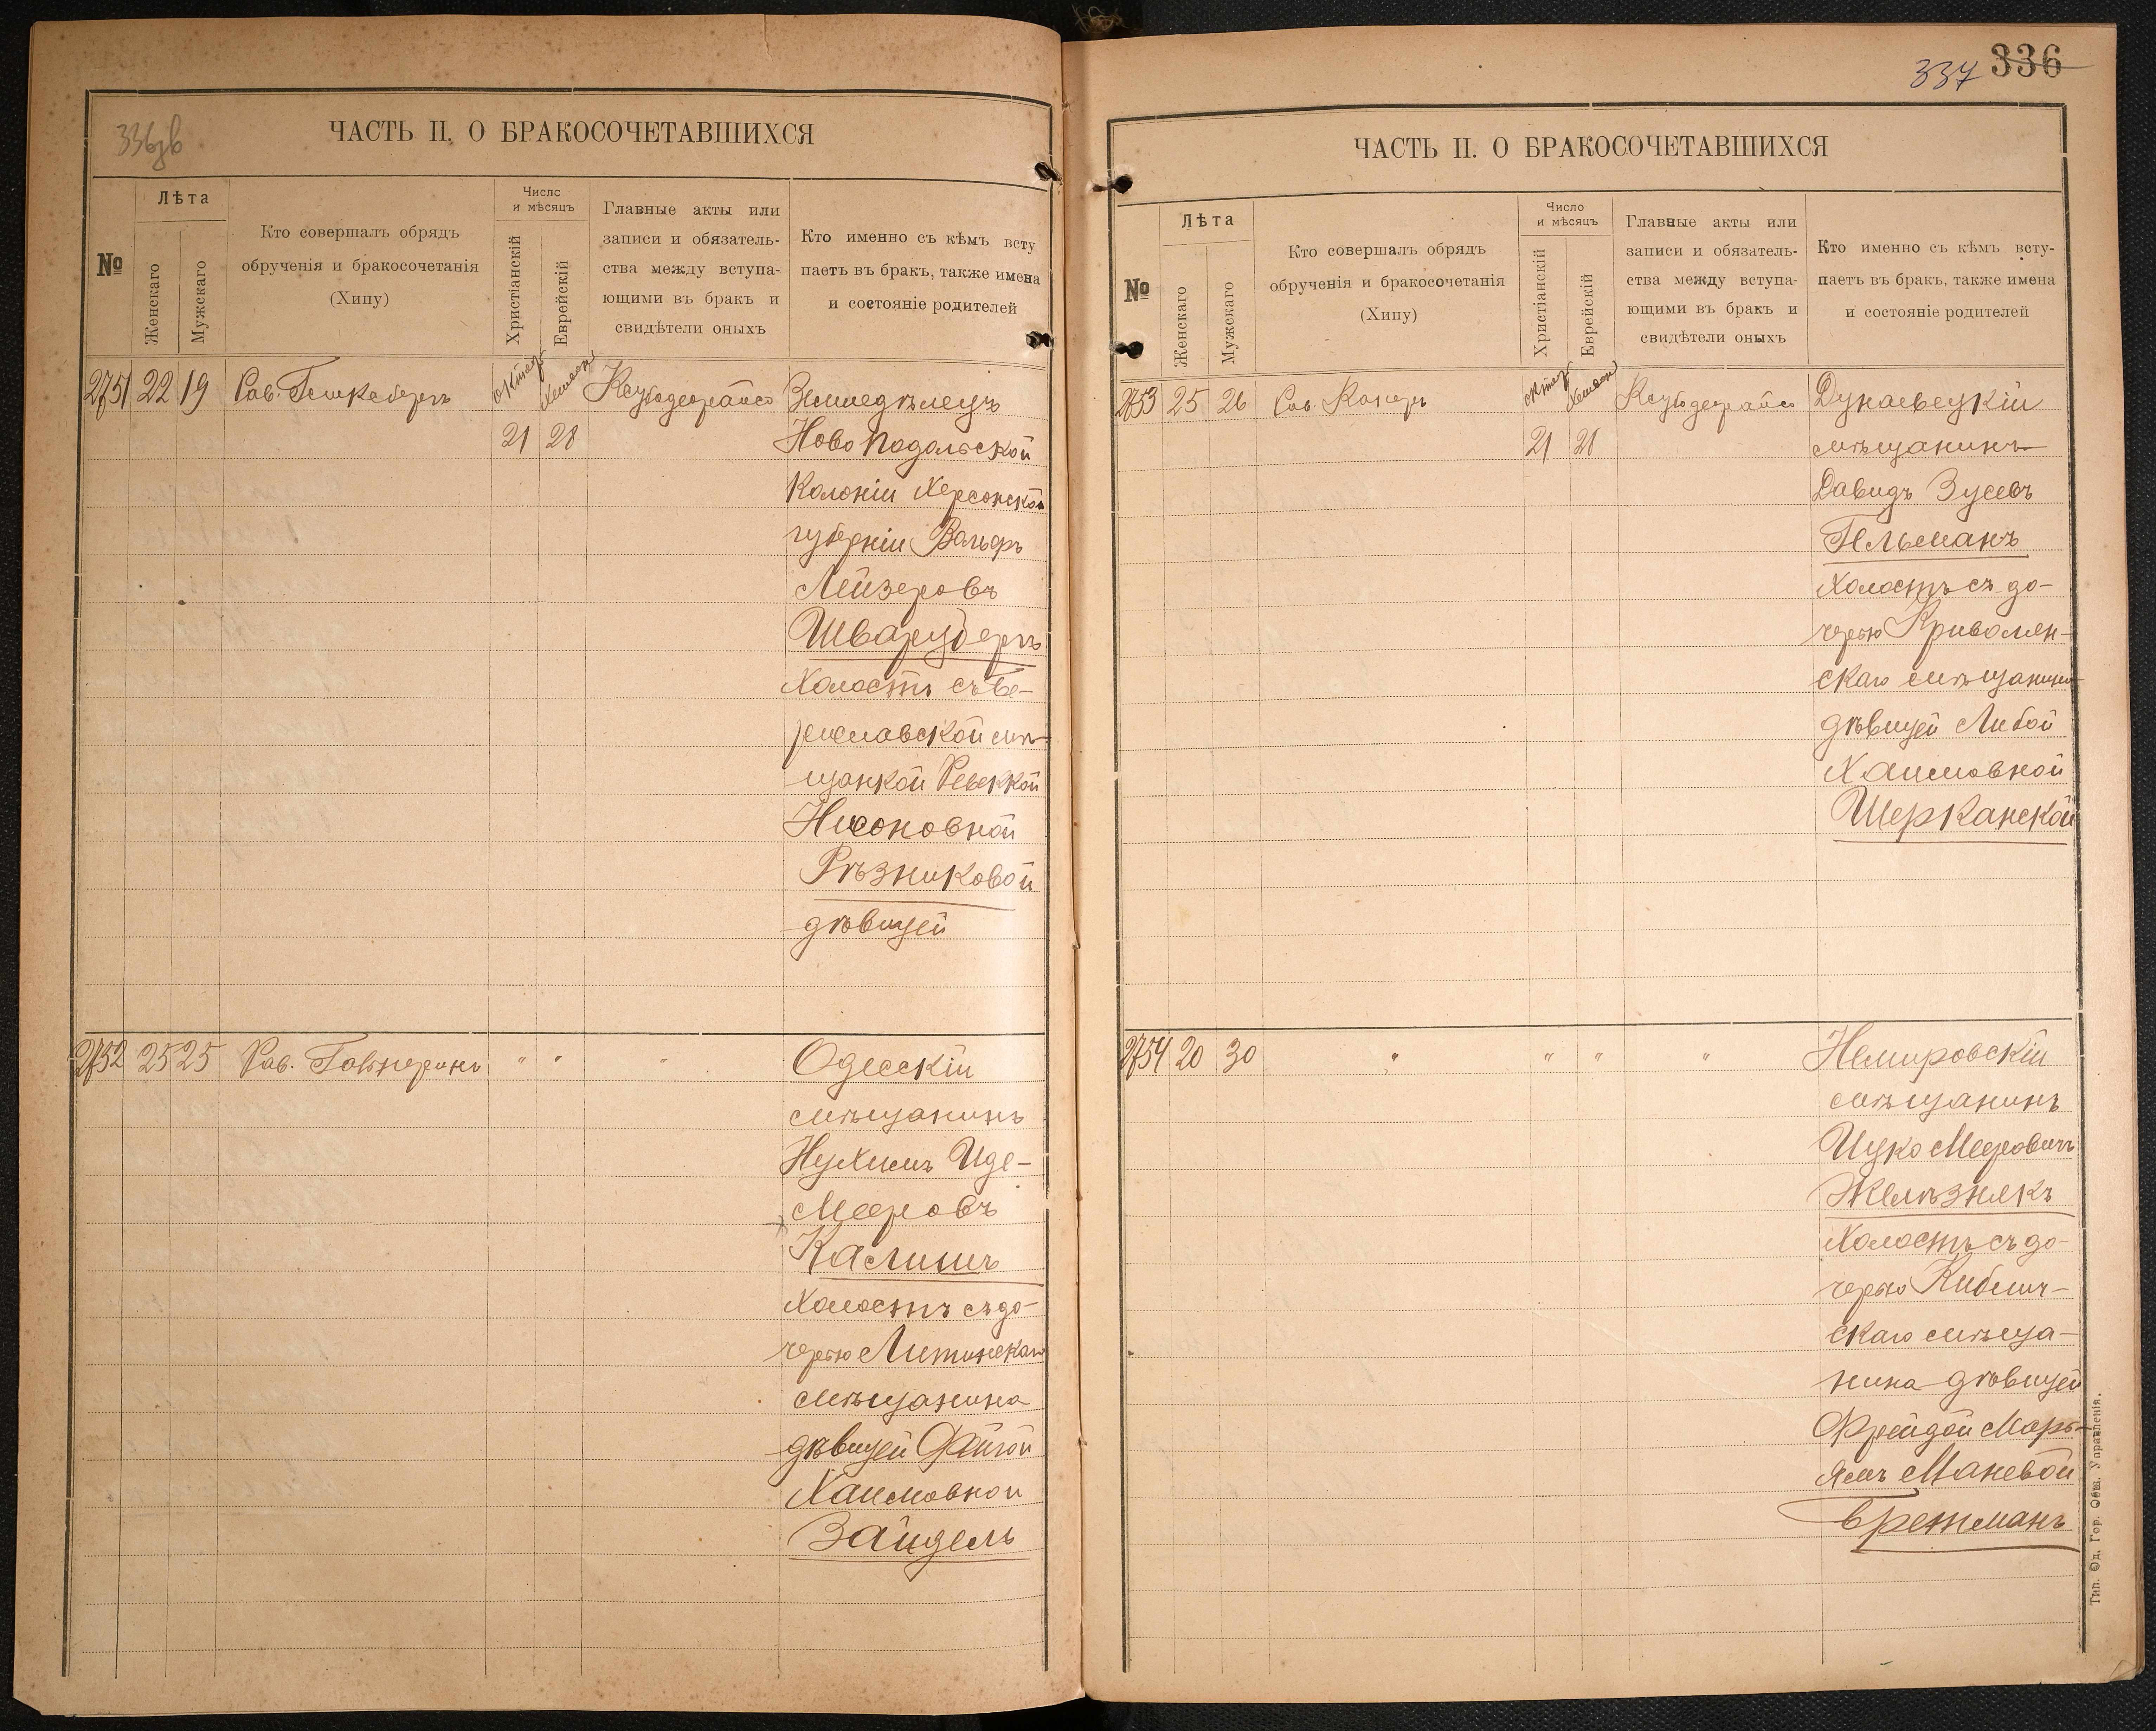 336зв
ЧАСТЬ II. О БРАКОСОЧЕТАВШИХСЯ
№
Лѣта
Женскаго
Мужскаго
Кто совершалъ обрядъ
обрученія и бракосочетанія
(Хипу)
Число
и мѣсяцъ
Христіанскій
Еврейскій
Главные акты или
записи и обязатель-
ства между вступа-
ющими въ бракъ и
свидѣтели оныхъ
Кто именно съ кѣмъ всту
паетъ въ бракъ, также имена
и состояніе родителей
2751 22 19 Рав. Земледѣлецъ
21 28 Ново Подольской
Колоніи Херсонской
губерніи Вольфъ
Лейзеровъ
Шварцбергъ
Холостъ съ Бе-
риславской мѣ-
щанкой Ревеккой
Нисоновной
Рѣзниковой
дѣвицей
2752 25 25 Рав. Гальперинъ " " " Одесскій
мѣщанинъ
Нухимъ Иде-
Мееровъ
Калишъ
Холостъ съ до-
черью Литинскаго
мѣщанина
дѣвицей Фейгой
Хаимовной
Зайдель
337 336
ЧАСТЬ II. О БРАКОСОЧЕТАВШИХСЯ
№
Лѣта
Женскаго
Мужскаго
Кто совершалъ обрядъ
обрученія и бракосочетанія
(Хипу)
Число
и мѣсяцъ
Христіанскій
Еврейскій
Главные акты или
записи и обязатель-
ства между вступа-
ющими въ бракъ и
свидѣтели оныхъ
Кто именно съ кѣмъ всту-
паетъ въ бракъ, также имена
и состояніе родителей
2753 25 26 Рав. Дунаевецкій
21 28 мѣщанинъ
Давидъ Зусевъ
Гельманъ
Холостъ съ до-
черью Криволен-
скаго мѣщанина
дѣвицей Либой
Хаимовной
Шерканской
2754 20 30 " " " " Немировскій
мѣщанинъ
Ицко Мееровичъ
Желѣзнякъ
Холостъ съ до-
черью Киблич-
скаго мѣща-
нина дѣвицей
Фрейдой Марь-
ямъ Маневой
Бретманъ
Тип. Од. Гор. Общ. Управленія.